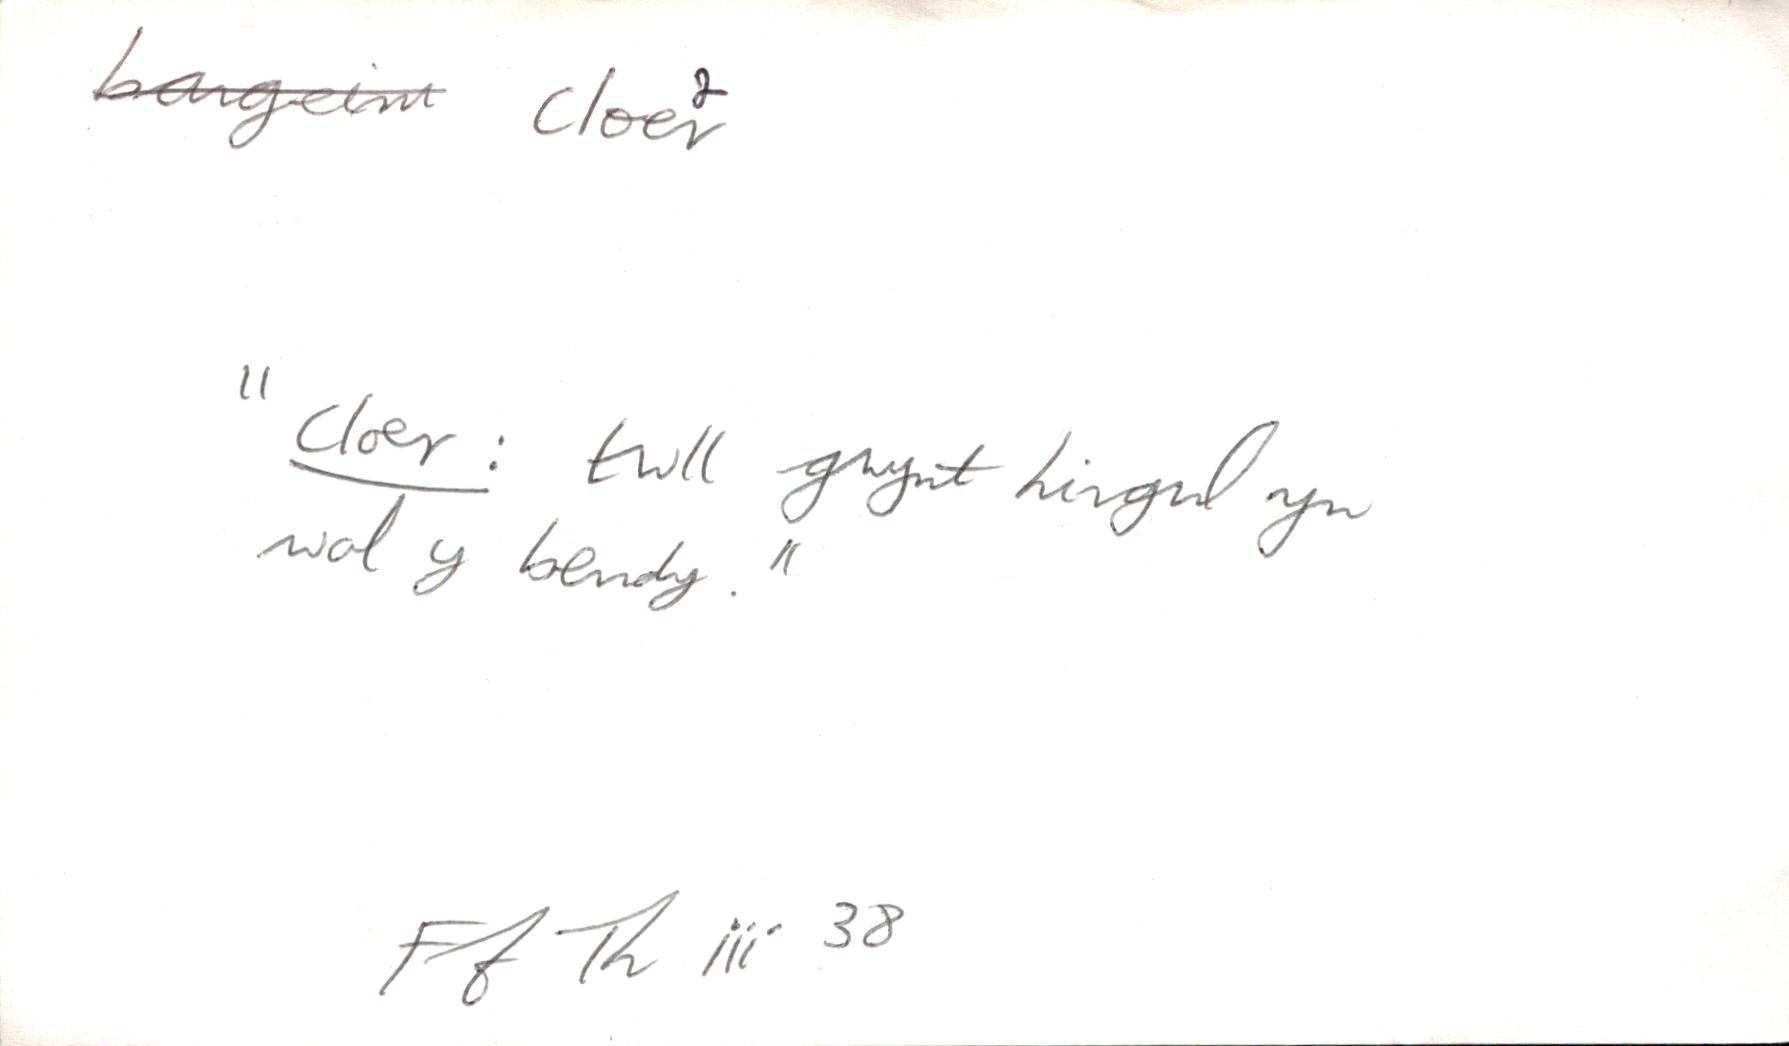 bargeinn cloer²
"cloer: twll gwynt hirgul yn
wal y bendy."
Ff Th iii 38